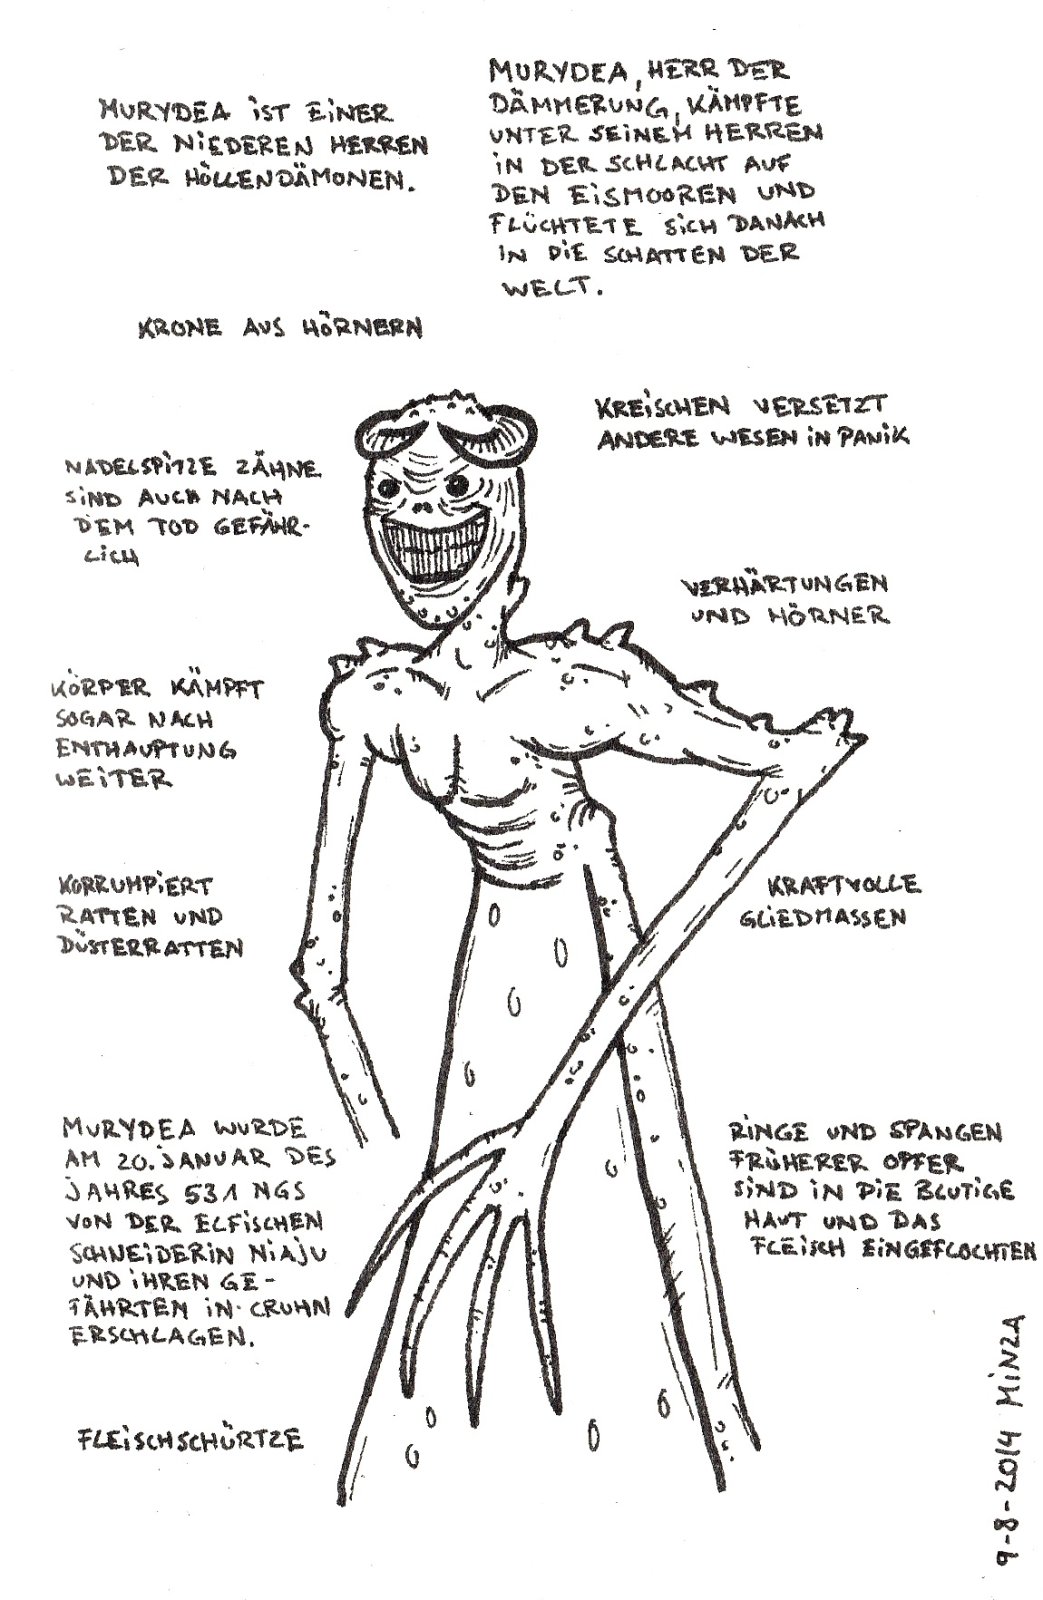 MURYDEA IST EINER
DER NIEDEREN HERREN
DER HÖLLENDÄMONEN.
MURYDEA, HERR DER
DÄMMERUNG, KÄMPFTE
UNTER SEINEM HERREN
IN DER SCHLACHT AUF
DEN EISMOOREN UND
FLÜCHTETE SICH DANACH
IN DIE SCHATTEN DER
WELT.
KRONE AUS HÖRNERN
KREISCHEN VERSETZT
ANDERE WESEN IN PANIK
NADELSPITZE ZÄHNE
SIND AUCH NACH
DEM TOD GEFÄHR-
LICH
VERHÄRTUNGEN
UND HÖRNER
KÖRPER KÄMPFT
SOGAR NACH
ENTHAUPTUNG
WEITER
KORRUMPIERT
RATTEN UND
DÜSTERRATTEN
KRAFTVOLLE
GLIEDMASSEN
MURYDEA WURDE
AM 20. JANUAR DES
JAHRES 531 NGS
VON DER ELFISCHEN
SCHNEIDERIN NIAJU
UND IHREN GE-
FÄHRTEN IN CRUHN
ERSCHLAGEN.
RINGE UND SPANGEN
FRÜHERER OPFER
SIND IN DIE BLUTIGE
HAUT UND DAS
FLEISCH EINGEFLOCHTEN
FLEISCHSCHÜRTZE
9-8-2014 MINZA